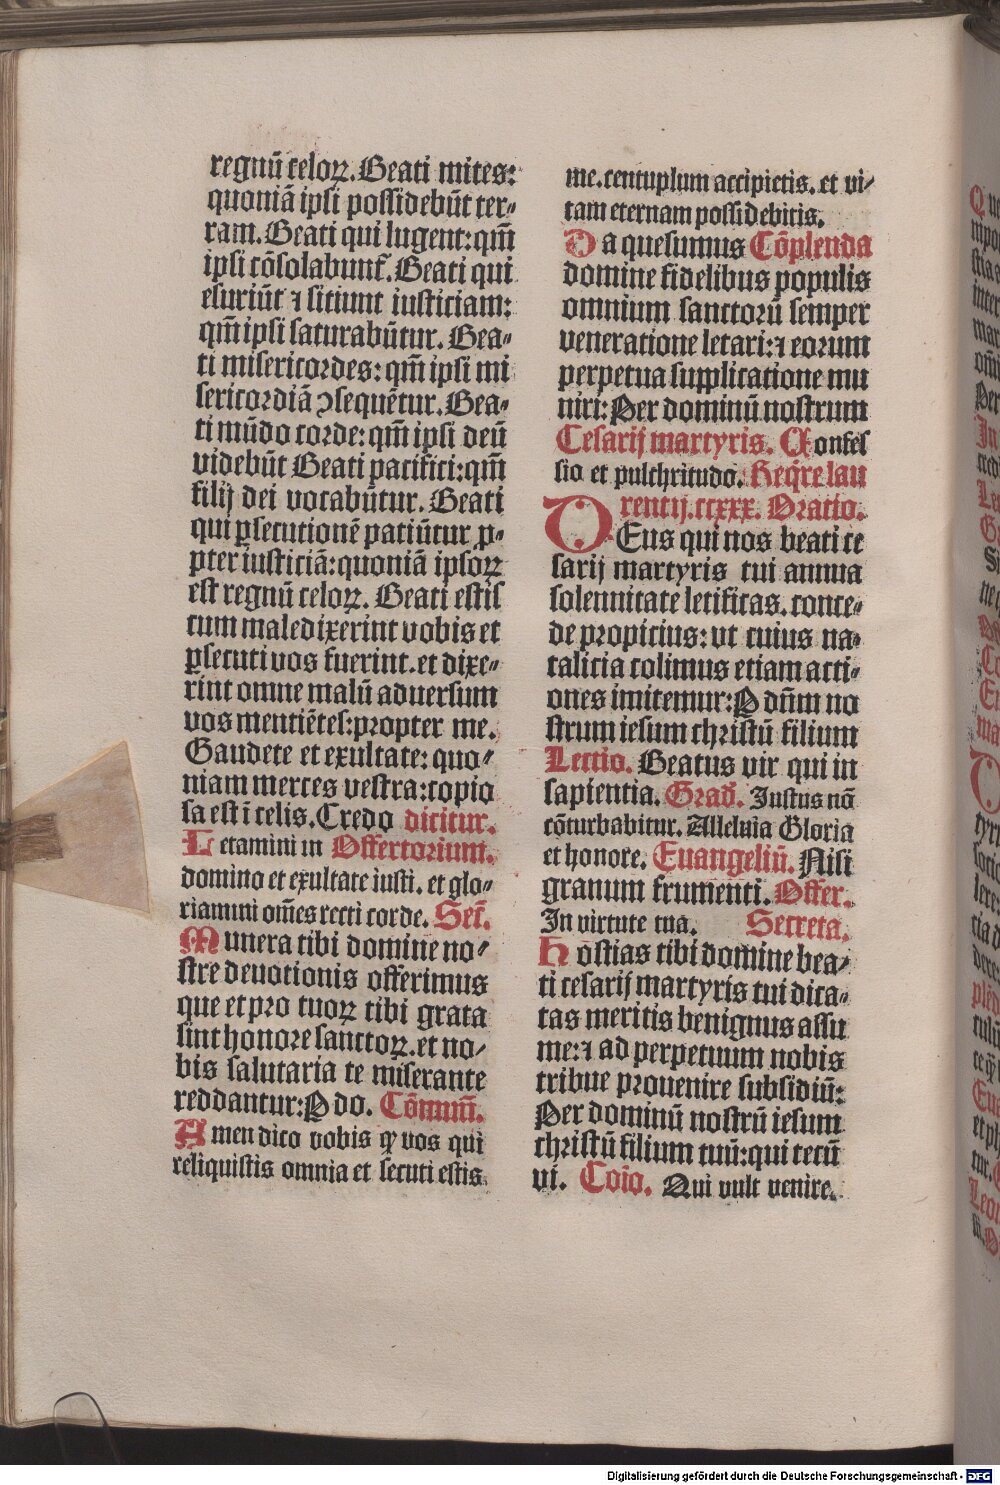 regnū celoꝝ. Beati mites:
quoniā ipsi possidebūt ter⸗
ram. Beati qui lugent: qm̄
ipsi cōsolabunt᷑. Beati qui
esuriūt ⁊ sitiunt iusticiam:
qm̄ ipsi saturabūtur. Bea⸗
ti misericordes: qm̄ ipsi mi
sericordiā ↄsequētur. Bea⸗
ti mūdo corde: qm̄ ipsi deū
videbūt Beati pacifici: qm̄
filij dei vocabūtur. Beati
qui ꝑsecutionē patiūtur ꝓ⸗
pter iusticiā: quoniā ipsoꝝ
est regnū celoꝝ. Beati estis
cum maledixerint vobis et
ꝑsecuti vos fuerint. et dixe⸗
rint omne malū aduersum
vos mentiētes: propter me.
Gaudete et exultate: quo⸗
niam merces vestra: copio
sa est ī celis. Credo dicitur.
Letamini in Offertorium.
domino et exultate iusti. et glo⸗
riamini om̄es recti corde. Sec̄.
Munera tibi domine no⸗
stre deuotionis offerimus
que et pro tuoꝝ tibi grata
sint honore sanctoꝝ. et no⸗
bis salutaria te miserante
reddantur: P do. Cōmun̄.
Amen dico vobis ꝙ vos qui
reliquistis omnia et secuti estis
me. centuplum accipietis. et vi⸗
tam eternam possidebitis.
Da quesumus Cōplenda
domine fidelibus populis
omnium sanctorū semper
veneratione letari: ⁊ eorum
perpetua supplicatione mu
niri: Per dominū nostrum
Cesarij martyris. Confes
sio et pulchritudo. Req̄re lau
rentij. ccxxx. Oratio.
DEus qui nos beati ce
sarij martyris tui annua
solennitate letificas. conce⸗
de propicius: vt cuius na⸗
talicia colimus etiam acti⸗
ones imitemur: P dn̄m no
strum iesum christū filium
Lectio. Beatus vir qui in
sapientia. Grad̄. Iustus nō
cōturbabitur. Alleluia Gloria
et honore. Euangeliū. Nisi
granum frumenti. Offer.
In virtute tua. Secreta.
Hostias tibi domine bea⸗
ti cesarij martyris tui dica⸗
tas meritis benignus assu
me: ⁊ ad perpetuum nobis
tribue prouenire subsidiū:
Per dominū nostrū iesum
christū filium tuū: qui tecū
vi. Coīo. Qui vult venire.
Digitalisierung gefördert durch die Deutsche Forschungsgemeinschaft - DFG